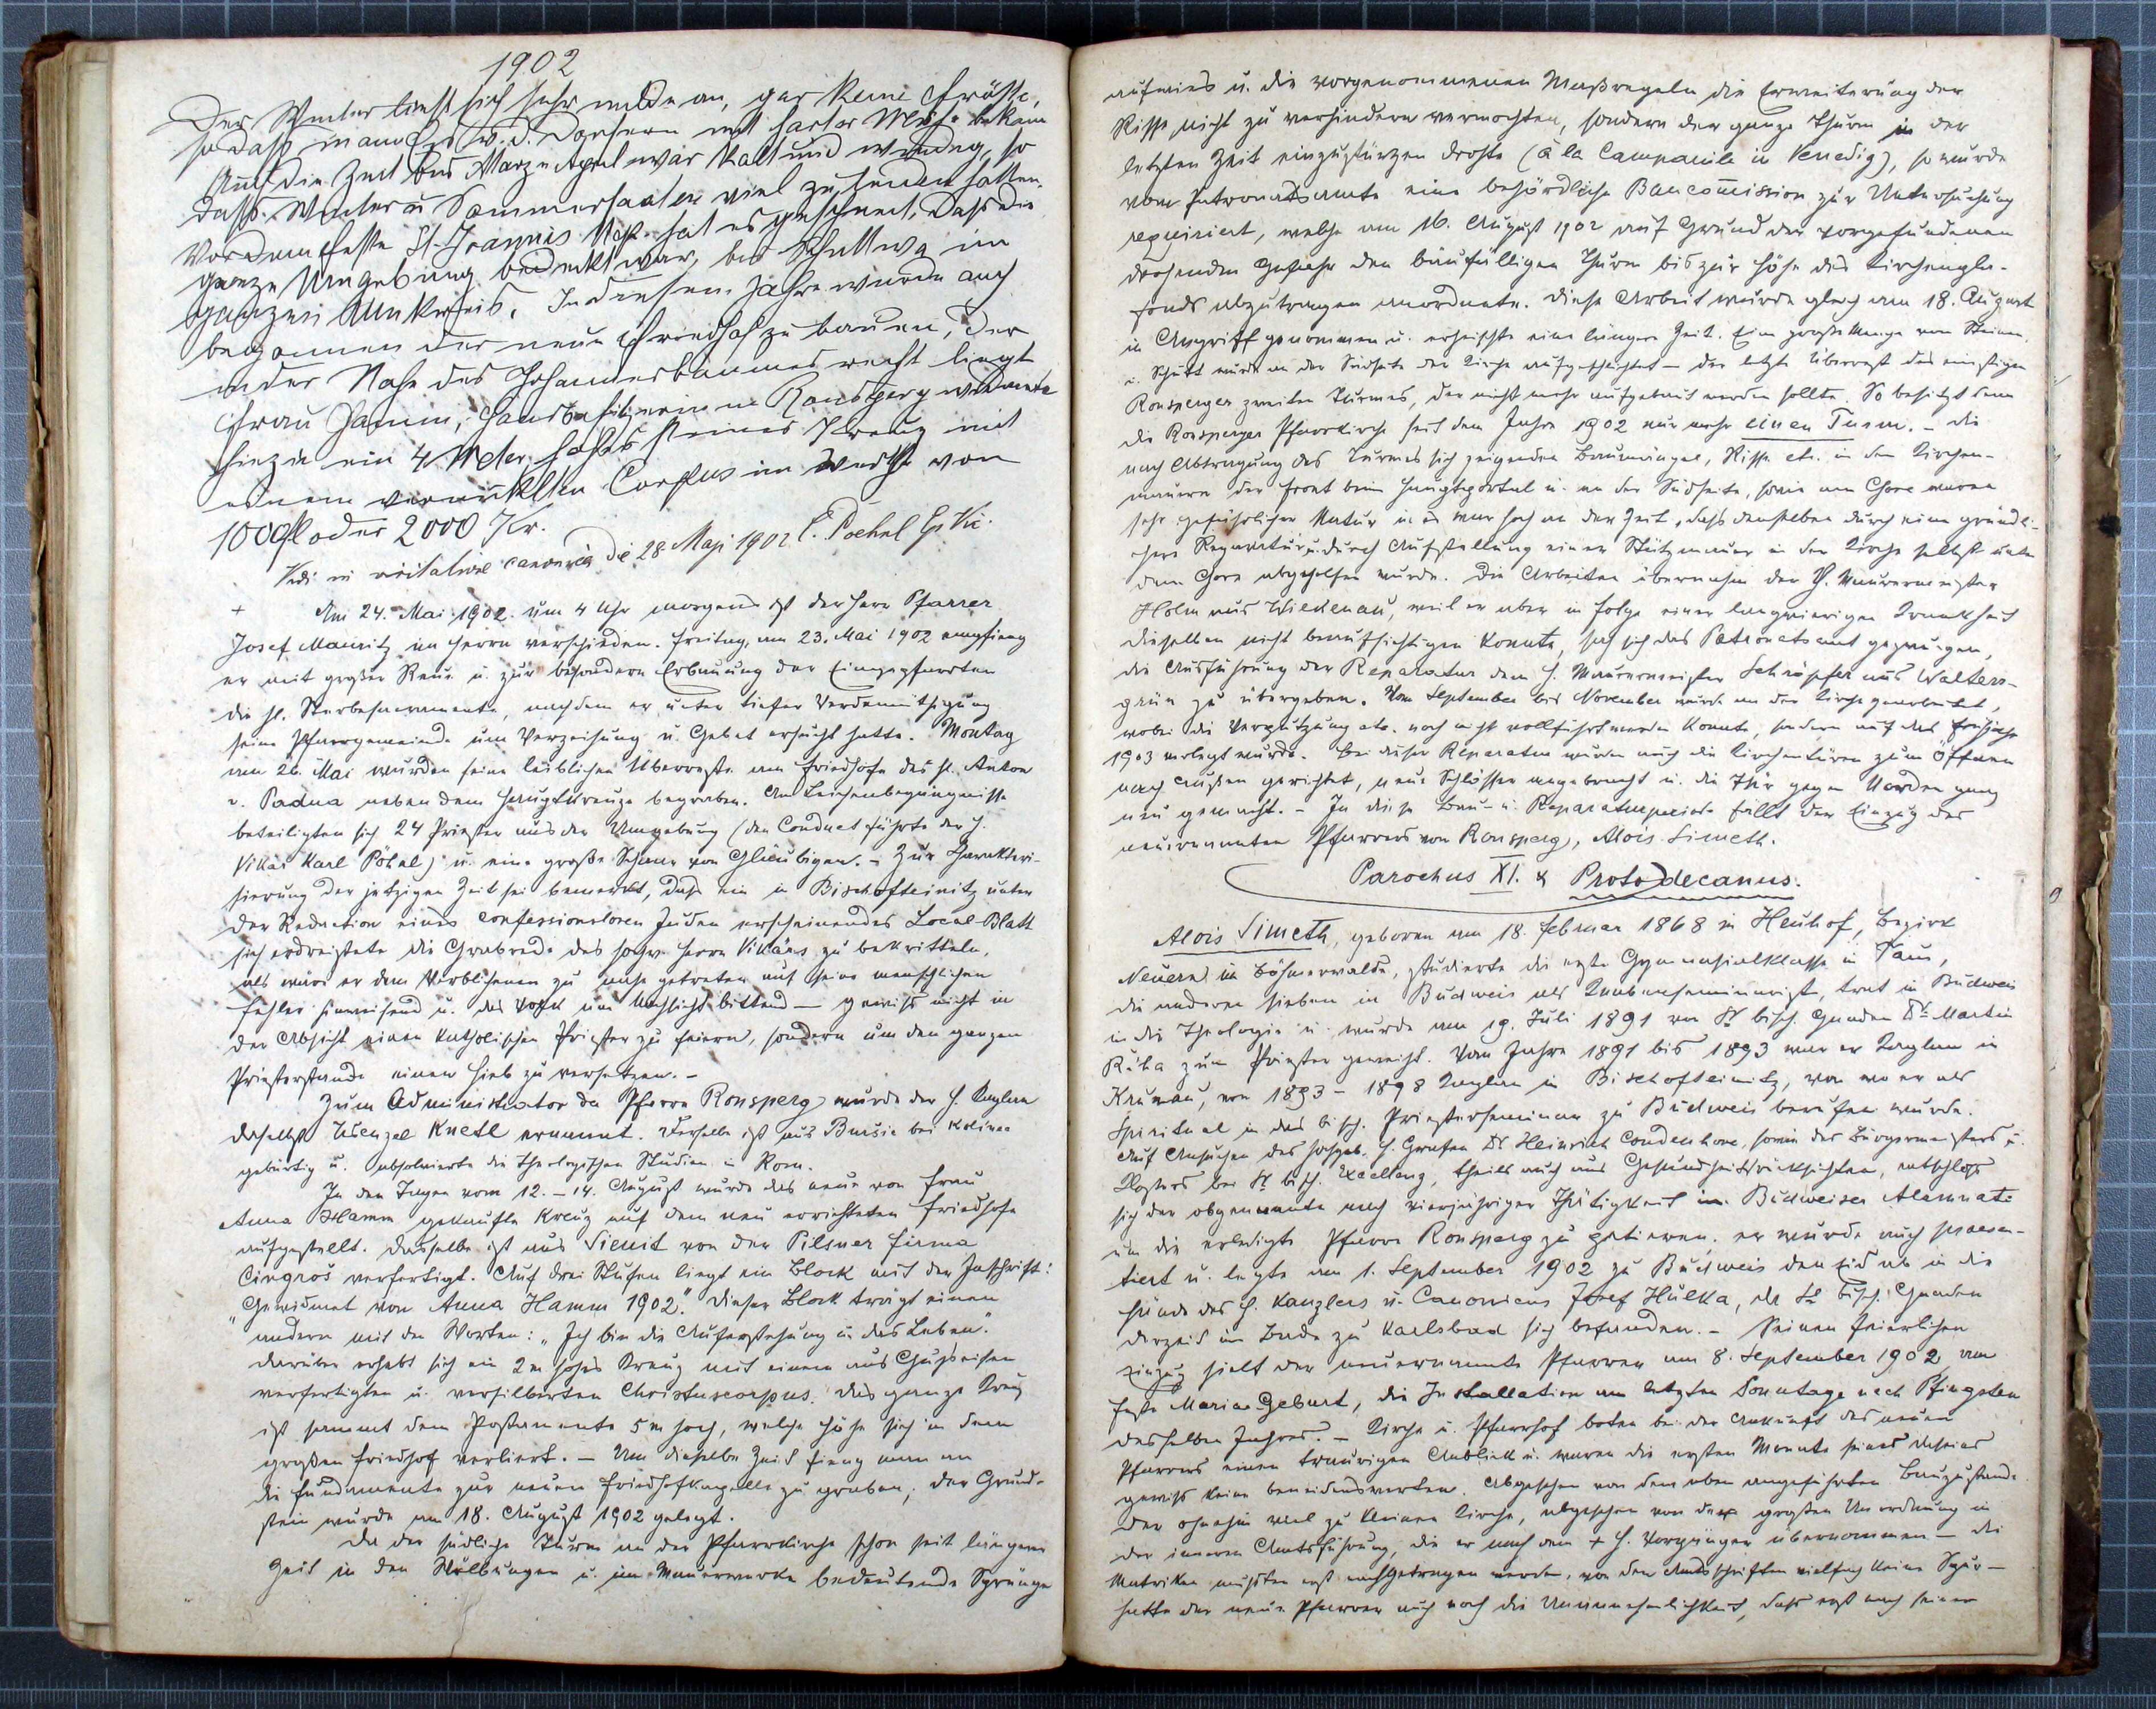 1902
Der Winter ließ sich sehr milde an, gar keine Fröste,
so daß man Eis v. d. Dörfern mit harter Mühe bekam
Auch die Zeit bis März u April war kalt und windig, so
daß Winter u Sommersaaten viel zu leiden hatten.
Vor dem Feste St. Joannis Nep. hat es geschneit, daß die
ganze Umgebung bedeckt war, bis Schüttwa im
ganzen Umkreis. In diesem Jahre wurde auch
begonnen der neue Friedhof zu bauen, der
in der Nähe des Johannesbaumes recht liegt
Frau Hamm, Hausbesitzerin in Ronsperg widmete
hiezu ein 4 Meter hohes steines Kreuz mit
einem vernickelten Corpus im Werthe von
1000 fl oder 2000 Kr.
Vidi in visitatione canonica die 28 Maji 1902 C. Poehnl bf. Vic.
+ Am 24. Mai 1902. um 4 Uhr morgens ist der Herr Pfarrer
Josef Mauritz im Herrn verschieden. Freitag, am 23. Mai 1902 empfieng
er mit großer Reue u. zur besondern Erbauung der Eingepfarrten
die hl. Sterbesacramente, nachdem er unter tiefer Verdemüthigung
seine Pfarrgemeinde um Verzeihung u. Gebet ersucht hatte. Montag
am 26. Mai wurden seine leiblichen Überreste am Friedhofe des hl. Anton
v. Padua neben dem Hauptkreuze begraben. Am Leichenbegängnisse
beteiligten sich 24 Priester aus der Umgebung (den Conduct führte der H.
Vikär Karl Pöhnl) u. eine große Schaar von Gläubigen. – Zur Charakteri-
sierung der jetzigen Zeit sei bemerkt, daß ein in Bischofteinitz unter
der Redaction eines confessionslosen Juden erscheinendes Local-Blatt
sich erdreistete die Grabrede des hochw. Herrn Vikärs zu bekritteln,
als wäre er dem Verblichenen zu nahe getreten auf seine menschlichen
Fehler hinweisend u. das Volk um Nachsicht bittend – gewiß nicht in
der Absicht einen katholischen Priester zu feiern, sondern um den ganzen
Priesterstande einen Hieb zu versetzen. –
Zum Administrator der Pfarre Ronsperg wurde der H. Kaplan
daselbst Wenzel Knetl ernannt. Derselbe ist aus bei Kolinec
gebürtig u. absolvierte die theologischen Studien in Rom.
In den Tagen vom 12. – 14. August wurde das neue von Frau
Anna Hamm gekaufte Kreuz auf dem neu errichteten Friedhofe
aufgestellt. Dasselbe ist aus Sienit von der Pilsner Firma
Cingroš verfertigt. Auf drei Stufen liegt ein Block mit der Inschrift:
„Gewidmet von Anna Hamm 1902." Dieser Block trägt einen
andern mit den Worten: „Ich bin die Auferstehung u. das Leben."
Darüber erhebt sich ein 2 m hohes Kreuz mit einem aus Gußeisen
verfertigten u. versilberten Christuscorpus. Das ganze Kreuz
ist sammt dem Postamente 5 m hoch, welche Höhe sich in dem
großen Friedhof verliert. – Um dieselbe Zeit fieng man an
die Fundamente zur neuen Friedhofkapelle zu graben; der Grund-
stein wurde am 18. August 1902 gelegt.
Da der südliche Turm an der Pfarrkirche schon seit längerer
Zeit in den Wölbungen u. im Mauerwerke bedeutende Sprünge
aufwies u. die vorgenommenen Maßregeln die Erweiterung der
Risse nicht zu verhindern vermochten, sondern der ganze Thurm in der
letzten Zeit einzustürzen drohte (à la Campanile in Venedig), so wurde
vom Patronatsamte eine behördliche Baucommission zur Untersuchung
requiriert, welche am 16. August 1902 auf Grund der vorgefundenen
drohenden Gefahr den baufälligen Thurm bis zur Höhe des Kirchenpla-
fonds abzutragen anordnete. Diese Arbeit wurde gleich am 18. August
in Angriff genommen u. erheischte eine längere Zeit. Eine große Menge von Steinen
u. Schutt wurde an der Südseite der Kirche aufgeschichtet – der letzte Überrest des einstigen
Ronsperger zweiten Turmes, der nicht mehr aufgebaut werden sollte. So besitzt denn
die Ronsperger Pfarrkirche seit dem Jahre 1902 nur mehr einen Turm. – Die
nach Abtragung des Turmes sich zeigenden Baumängel, Risse etc. in den Kirchen-
mauern der Front beim Hauptportal u. an der Südseite, sowie am Chore waren
sehr gefährlicher Natur u. es war hoch an der Zeit, daß denselben durch eine gründli-
chere Reparatur u. durch Aufstellung einer Stützmauer in der Kirche selbst unter
dem Chore abgeholfen wurde. Die Arbeiten übernahm der H. Maurermeister
Holm aus Wilkenau, weil er aber in Folge einer langwierigen Krankheit
dieselben nicht beaufsichtigen konnte, sah sich das Patronatsamt gezwungen,
die Ausführung der Reparatur dem H. Maurermeister Schröpfer aus Walters-
grün zu übergeben. Vom September bis November wurde an der Kirche gearbeitet,
wobei die Verputzung etc. noch nicht vollführt werden konnte, sondern auf das Frühjahr
1903 verlegt wurde. Bei dieser Reparatur wurden auch die Kirchentüren zum Öffnen
nach Außen gerichtet, neue Schlösser angebracht u. die Thür gegen Norden ganz
neu gemacht. – In diese Bau- u. Reparaturperiode fällt der Einzug des
neuernannten Pfarrers von Ronsperg, Alois Simeth.
Parochus XI. & Protodecanus.
Alois Simeth, geboren am 18. Februar 1868 in Heuhof, Bezirk
Neuern im Böhmerwalde, studierte die erste Gymnasialklasse in Taus,
die anderen sieben in Budweis als Knabenseminarist, trat in Budweis
in die Theologie u. wurde am 19. Juli 1891 von Sr bisch. Gnaden Dr. Martin
Říha zum Priester geweiht. Vom Jahre 1891 bis 1893 war er Kaplan in
Krumau, von 1893 – 1898 Kaplan in Bischofteinitz, von wo er als
Spiritual in das bisch. Priesterseminar zu Budweis berufen wurde.
Auf Ansuchen des hochgeb. H. Grafen Dr Heinrich Coudenhove, sowie des Bürgermeisters u.
bei Sr bisch. Excellenz, theils auch aus Gesundheitsrücksichten, entschloß
sich der obgenannte nach vierjähriger Thätigkeit im Budweiser Alumnate
um die erledigte Pfarre Ronsperg zu petieren; er wurde auch praesen-
tiert u. legte am 1. September 1902 zu Budweis den Eid ab in die
Hände des H. Kanzlers u. Canonicus Josef Hůlka, da Se bisch. Gnaden
derzeit im Bade zu Karlsbad sich befanden. – Seinen feierlichen
Einzug hielt der neuernannte Pfarrer am 8. September 1902 am
Feste Mariae Geburt, die Installation am letzten Sonntage nach Pfingsten
desselben Jahres. – Kirche u. Pfarrhof boten bei der Ankunft des neuen
Pfarrers einen traurigen Anblick u. waren die ersten Monate seines Daseins
gewiß keine beneidenswerten. Abgesehen von dem oben angeführten Bauzustande
der ohnehin viel zu kleinen Kirche, abgesehen von der großen Unordnung in
der inneren Amtsführung, die er nach dem + H. Vorgänger übernommen – die
Matriken mußten erst nachgetragen werden, von den Amtsschriften vielfach keine Spur –
hatte der neue Pfarrer auch noch die Unannehmlichkeit, daß erst nach seiner